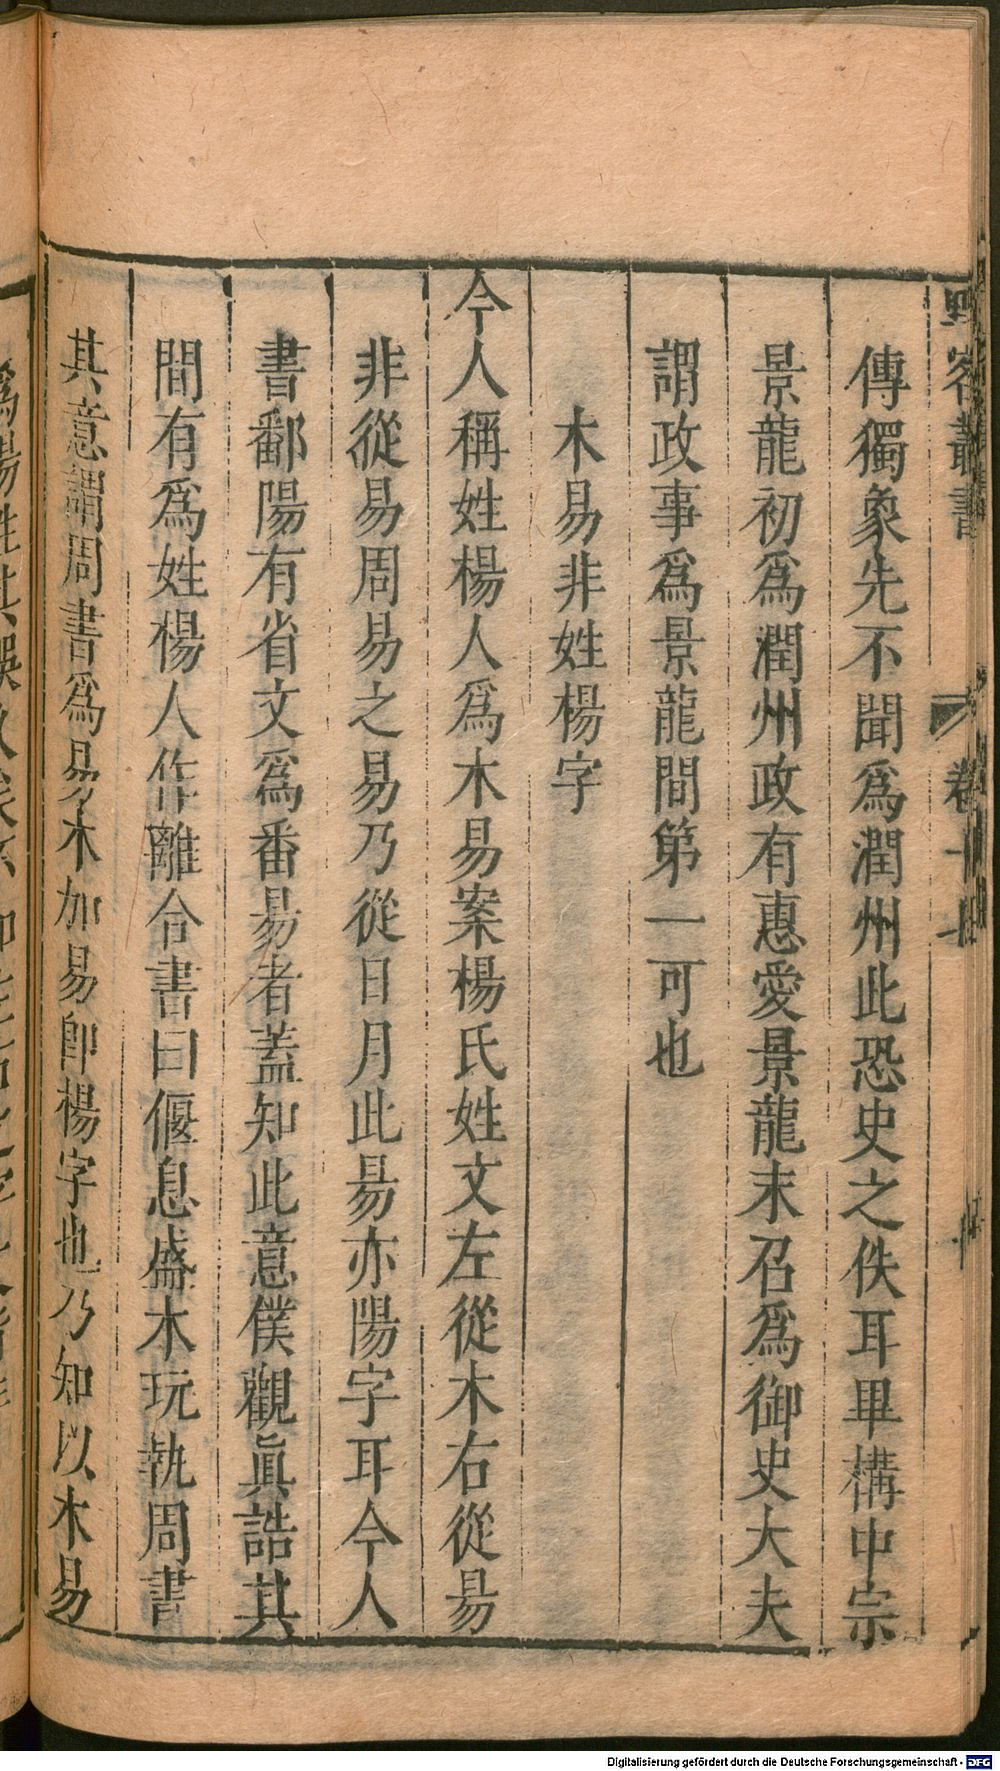 野客叢書 卷十七
傳獨象先不聞爲潤州此恐史之佚耳畢構中宗
景龍初爲潤州政有惠愛景龍末召爲御史大夫
謂政事爲景龍間第一可也
木易非姓楊字
今人稱姓楊人爲木易案楊氏姓文左從木右從昜
非從易周易之易乃從日月此昜亦陽字耳今人
書鄱陽有省文爲番昜者蓋知此意僕觀眞誥其
間有爲姓楊人作離合書曰偃息盛木玩執周書
其意謂周書爲易木加易卽楊字也乃知以木易
Digitalisierung gefördert durch die Deutsche Forschungsgemeinschaft - DFG